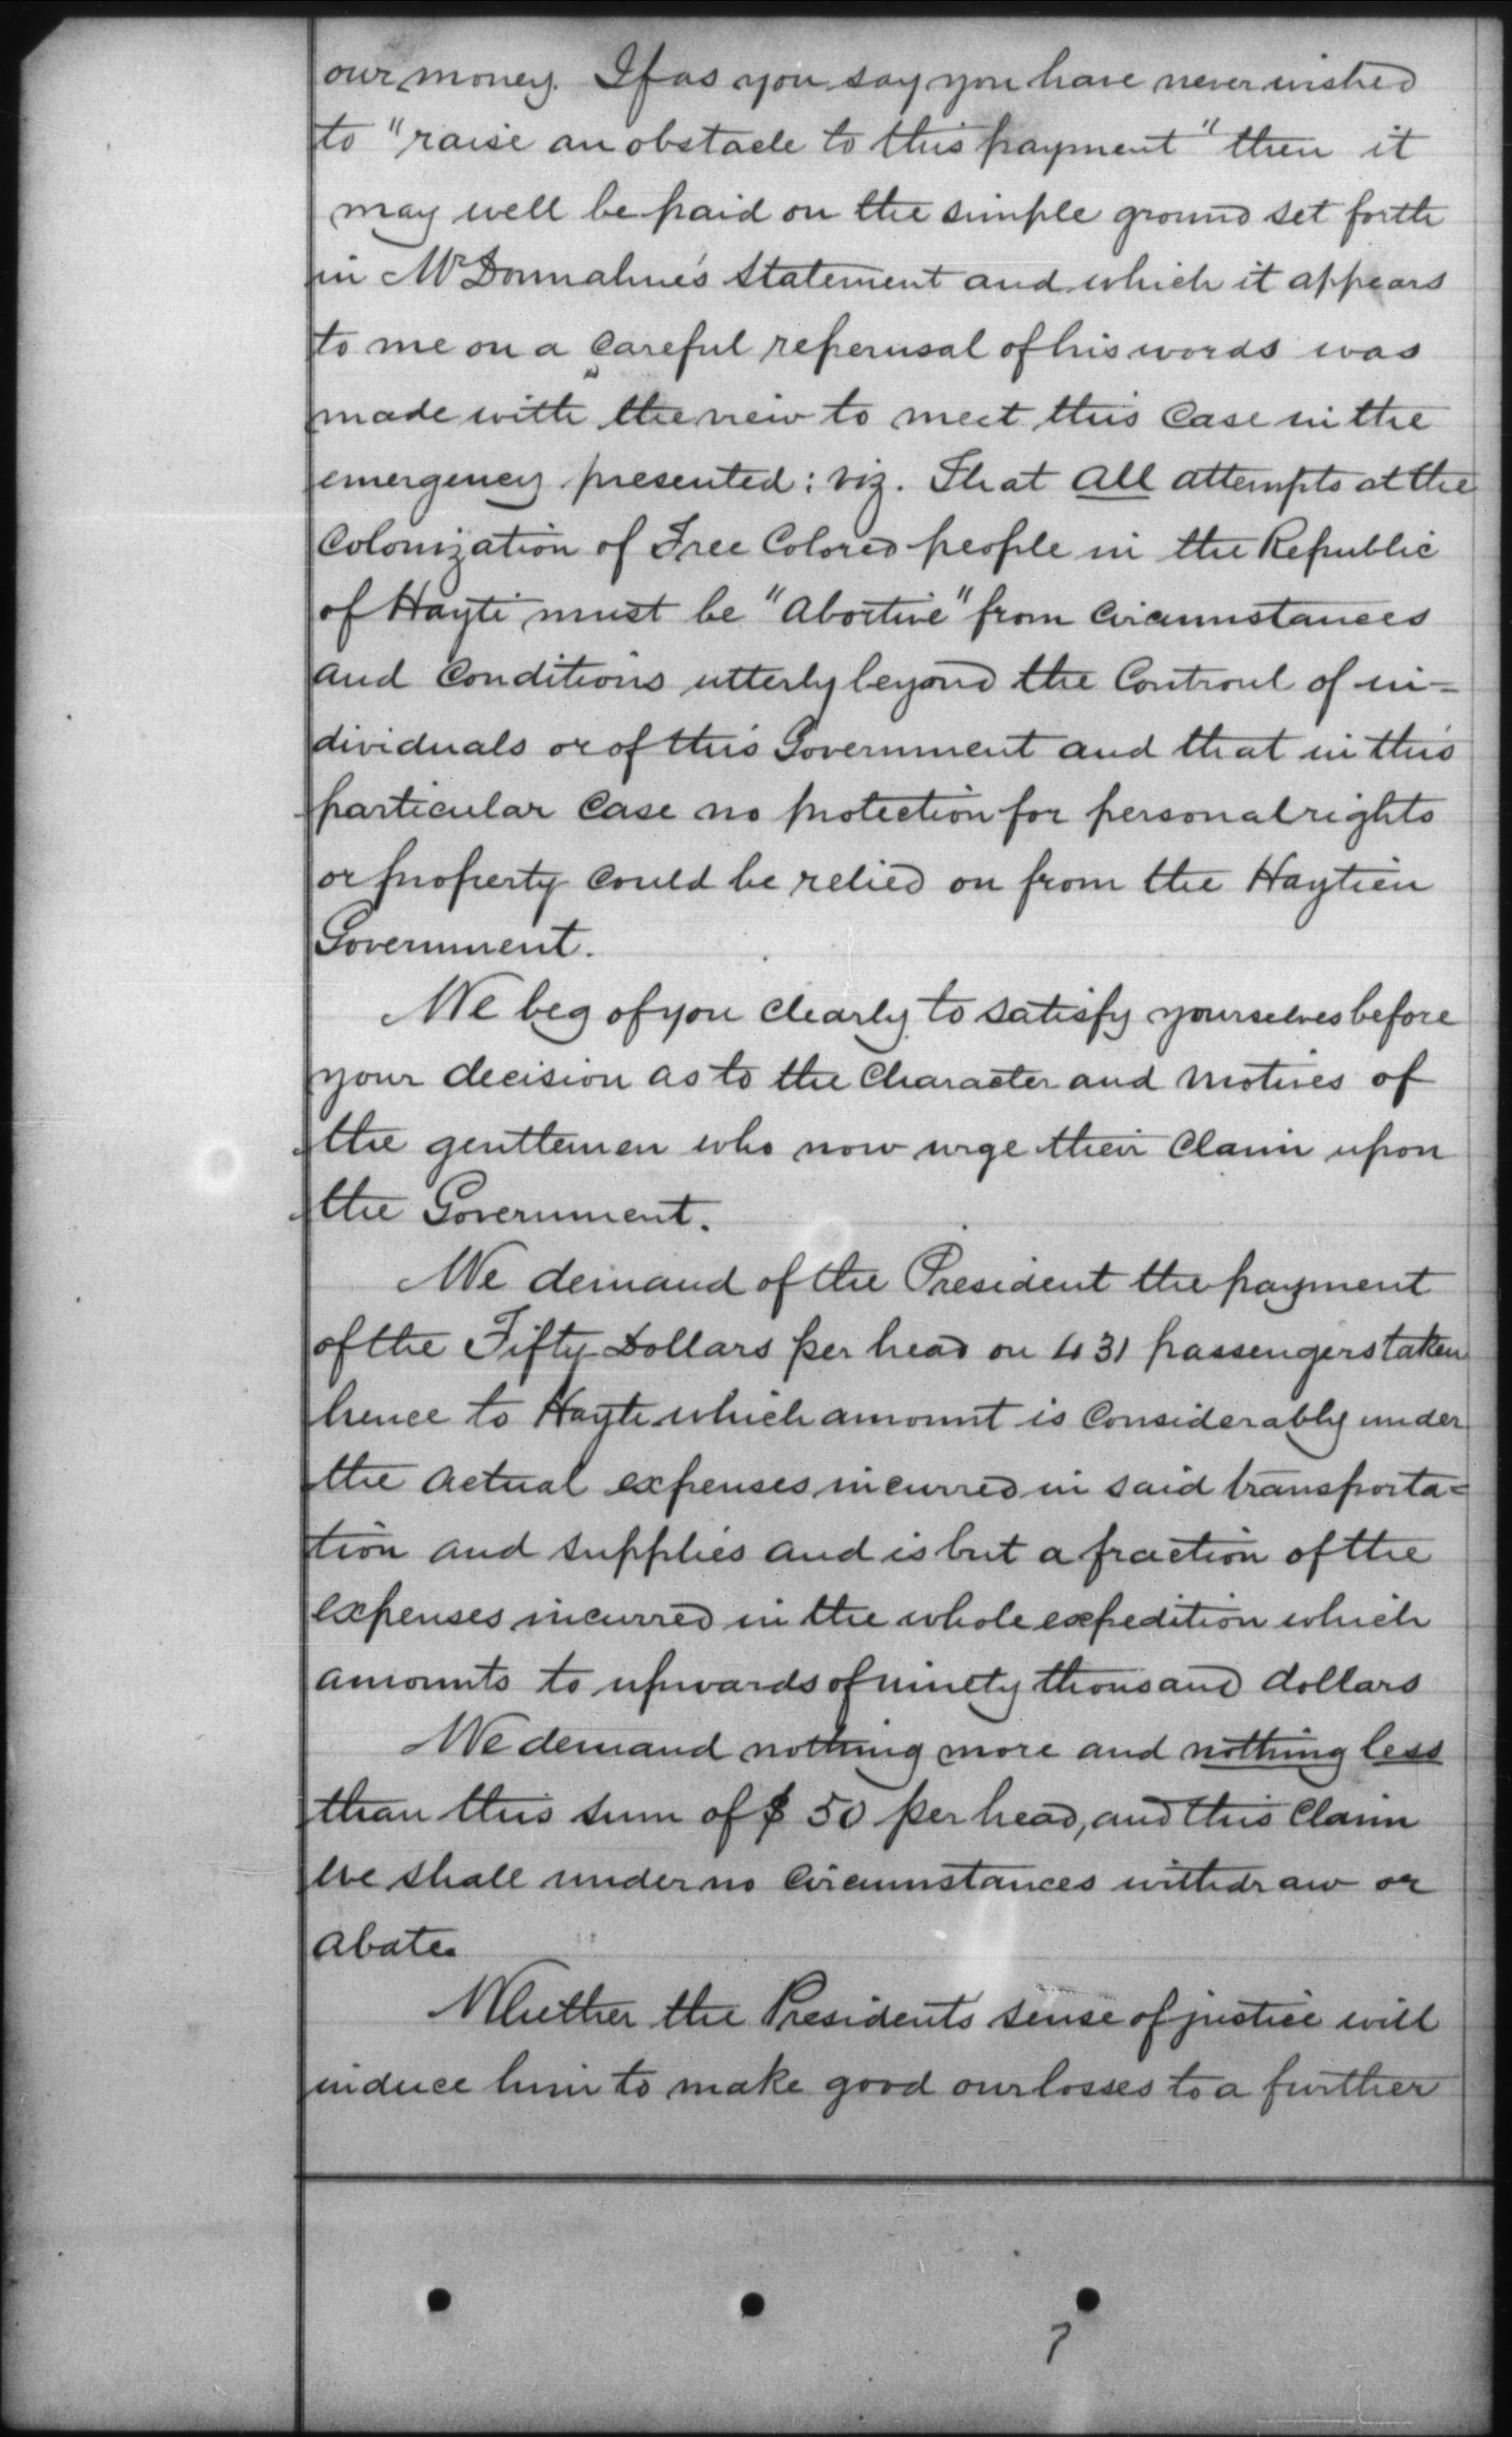 our money. If as you say you have never wished
to "raise an obstacle to this payment" then it
may well be paid on the simple ground set forth
in Mr Donnahue's statement and which it appears
to me on a careful reperusal of his words was
made with the view to meet this case in the
emergency presented: viz. That all attempts at the
Colonization of Free Colored people in the Republic
of Hayti must be "Abortive" from circumstances
and conditions utterly beyond the Controul of in=
dividuals or of this Government and that in this
particular case no protection for personal rights
or property could be relied on from the Haytien
Government.
We beg of you clearly to satisfy yourselves before
your decision as to the Character and motives of
the genttemen who now urge their claim upon
the Government.
We demand of the President the payment
of the Fifty Dollars per head on 431 passengers taken
hence to Hayti which amount is considerably under
the actual expenses incurred in said transporta=
tion and supplies and is but a fraction of the
expenses incurred in the whole expedition which
amounts to upwards of ninety thousand dollars
We demand nothing more and nothing less
than this sum of $ 50 per head, and this Claim
we shall under no circumstances withdraw or
abate.
Whether the Presidents sense of justice will
induce him to make good our losses to a further
7